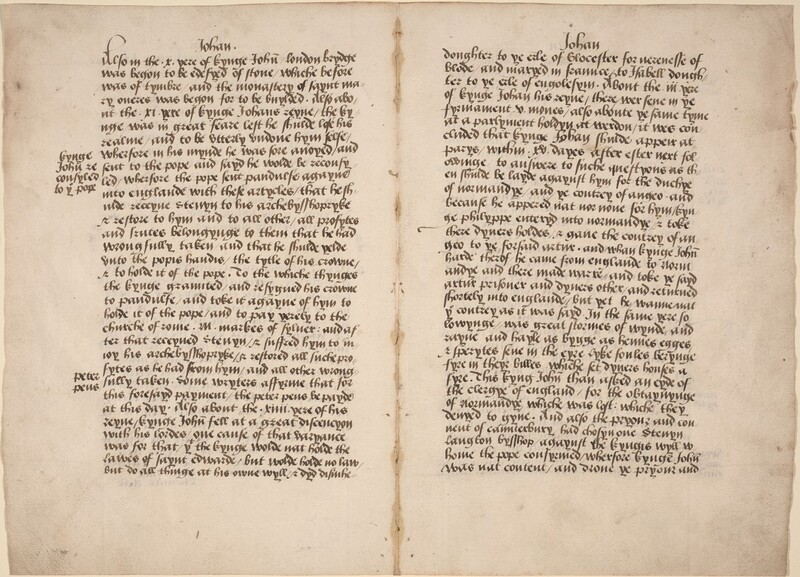 Johan.
Also in the .x. yere of kynge Johñ london brydge
was begon to be edefyed of stone, whiche before
was of tymbre, and the monastery of saynt ma
ry oueres was begon for to be buylded. Also abo
ut the .xi yere of kynge Johans reyne, the ky
nge was in great feare lest he shulde lose his
realme, and to be vtterly vndone hym selfe,
wherfore in his mynde he was sore anoyed, and
sent to the pope and sayd he wolde be reconsy
led, wherfore the pope sent pandulse agayne
into englande with these artycles, that he sh
ulde receyue Stewyn to his archebysshopryke
& restore to hym and to all other, all profytes
and frates belongynge to them that he had
wrongfully taken and that he shulde yelde
vnto the popis handis, the tytle of his crowne,
& to holde it of the pope. To the whiche thynges
the kynge graunted, and resygned his crowne
to pandulse, and toke it agayne of hym to
holde it of the pope, and to pay yerely to the
churche of rome .M. markes of sylver: and af
ter that receyued Stewyn, & suffred hym to in
ioy his archebysshopryke, & restored all suche pro
fytes as he had from hym, and all other wrong
fully taken. Some wryters affyrme that for
this foresayd payment, the peter pens be payde
at this day. Also about the .xiiii yere of his
reyne, kynge John fell at a great discencyon
with his lordes, one cause of that varyance
was for that yͭ the kynge wolde nat holde the
lawes of saynt edwarde, but wolde holde no law
but do all thinge at his owne wyll, & dyd disinhe
kynge
John re
consyled
to yͤ pope
peter
pens
Johan
doughter to ye erle of Glocester for nerenesse of
blode and maryed in fraunce, to Isabell dough
ter to ye erle of engolesym. About the iii yere
of kynge Johan his reyne, there wer sene in ye
fyrmament v. mones, also aboute ye same tyme
at a parlyment holdyn at werdon, it wes con
cluded that kynge Johan shulde apper at
parys, within .xv. dayes after ester next fol
owinge to answere to suche questyons as th
en shulde be layde agaynst hym for the duchye
of normandye, and ye contrey of angeo and
because he appered nat nor none for hym, kyn
ge philyppe entered into normandye & toke
there dyuers holdes, & gaue the contrey of an
geo to ye forsaid artur. and whan kynge Johñ
harde therof he came from englande to norm
andye and there made warre, and toke ye sayd
artur prisoner and dyuers other, and returned
shortely into englande, but yet he wanne nat
yͤ contrey as it was sayd. In the same yere fo
lowynge, was great stormes of wynde, and
rayne and hayle as bygge as hennes egges
& speryles sene in the eyre lyke foules berynge
fyre in their billes whiche set dyuers houses a
fyre. This kyng John than asked an eyde of
the clergye of england, for the obtaynynge
of normandye whiche was lost, whiche they
denyed to gyue. And also the pryour and con
uent of caunterbury, had chosyn one Stewyn
langton bysshop agaynst the kyngis wyll w
home the pope confyrmed, wherfore kynge Johñ
was nat content, and droue ye pryour and